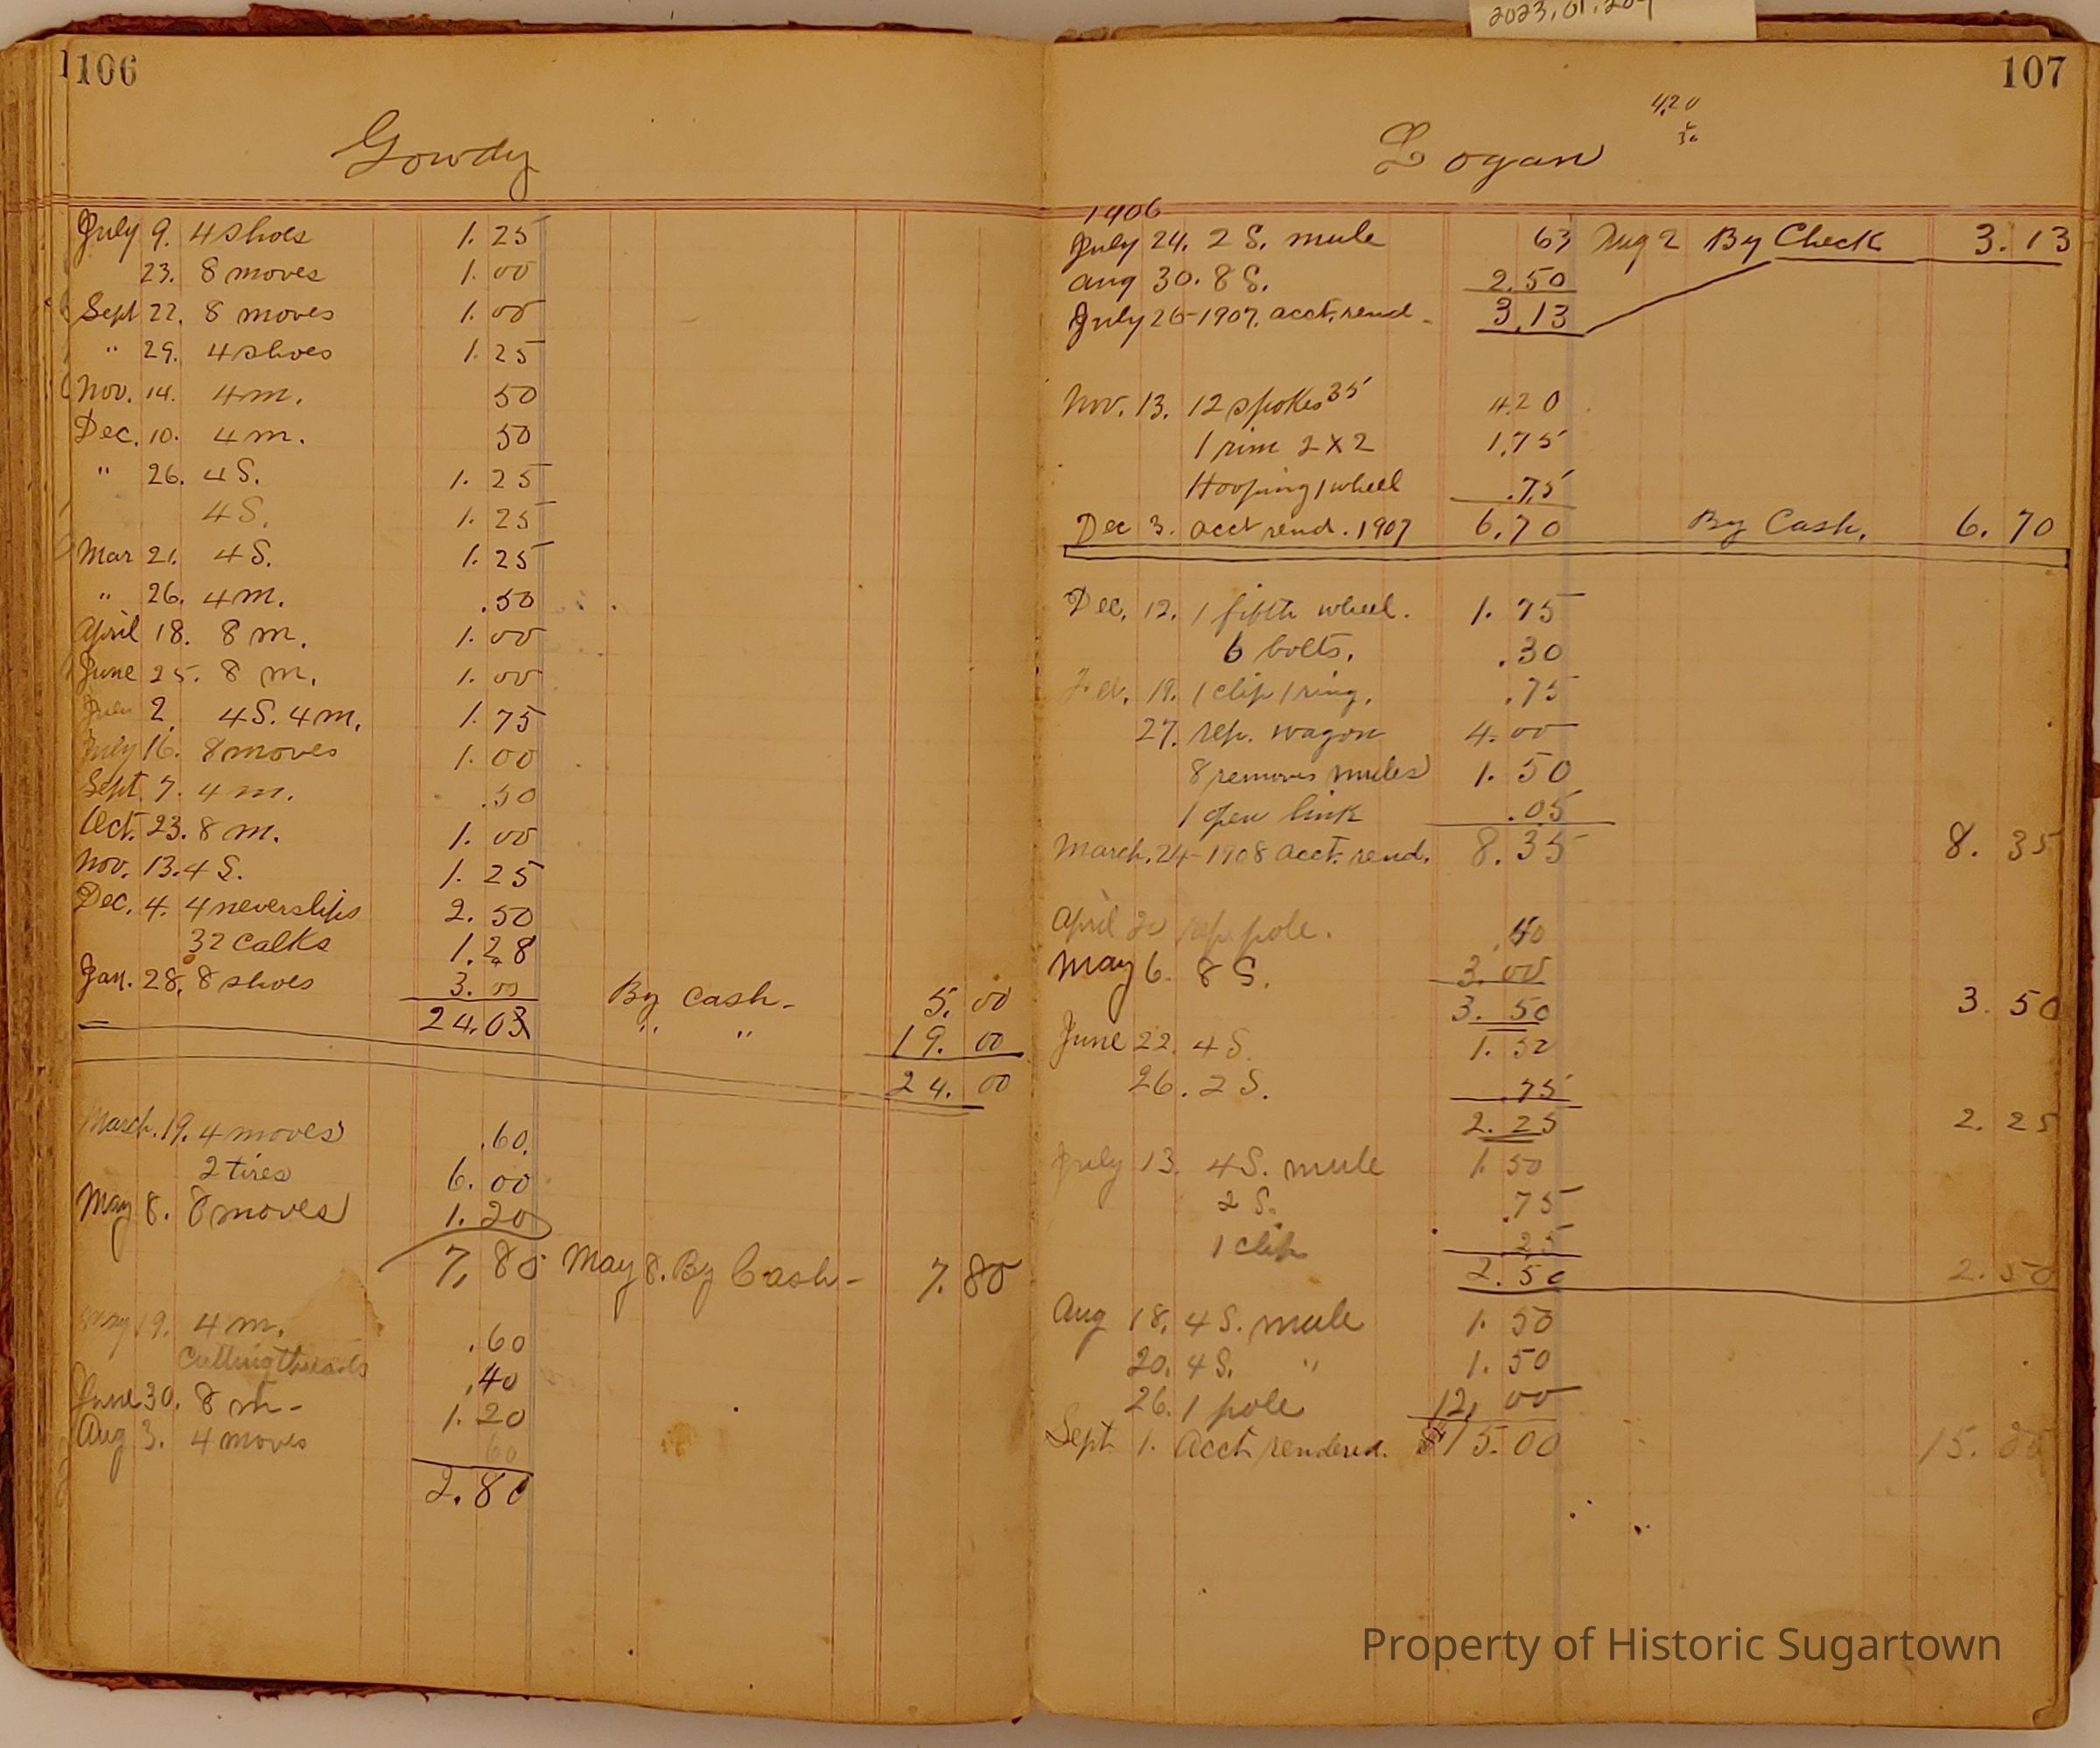 2023.01.207
106
Gowdy
July 9. 4 shoes 1.25
23. 8 moves 1.00
Sept 22. 8 moves 1.00
" 29. 4 shoes 1.25
Nov. 14. 4 m. 50
Dec. 10. 4 m. 50
" 26. 4 S. 1.25
4 S. 1.25
Mar 21. 4 S. 1.25
" 26. 4 m. .50
April 18. 8 m. 1.00
June 25. 8 m. 1.00
July 2. 4 S. 4 m. 1.75
July 16. 8 moves 1.00
Sept. 7. 4 m. .50
Oct. 23. 8 m. 1.00
Nov. 13. 4 S. 1.25
Dec. 4. 4 neverslips 2.50
32 Calks 1.28
Jan. 28. 8 shoes 3.00 By Cash - 5.00
24.03 " " 19.00
24.00
March. 19. 4 moves .60
2 tires 6.00
May 8. 8 moves 1.20
7.80 May 8. By Cash - 7.80
May 19. 4 m. .60
Cutting threads .40
June 30. 8 m - 1.20
Aug 3. 4 moves 60
2.80
107
4.20
Logan
1906
July 24. 2 S. mule 63 Aug 2 By Check 3.13
Aug 30. 8 S. 2.50
July 26-1907. acct. rend. 3.13
Nov. 13. 12 spokes 35 4.20
1 rim 2 X 2 1.75
Hooping 1 wheel .75
Dec 3. acct rend. 1907 6.70 By Cash. 6.70
Dec. 12. 1 fifth wheel. 1.75
6 bolts. .30
Feb. 19. 1 clip 1 ring. .75
27. rep. wagon 4.00
8 removes mules 1.50
1 open link .05
March. 24-1908 acct. rend. 8.35 8.35
April 20 rep pole.
May 6. 8 S. 3.00
3.50 3.50
June 22. 4 S. 1.50
26. 2 S. .75
2.25 2.25
July 13. 4 S. mule 1.50
2 S. .75
1 clip .25
2.50 2.50
Aug 18. 4 S. mule 1.50
20. 4 S. " 1.50
26. 1 pole 12.00
Sept 1. Acct. rendered. $15.00 15.00
Property of Historic Sugartown